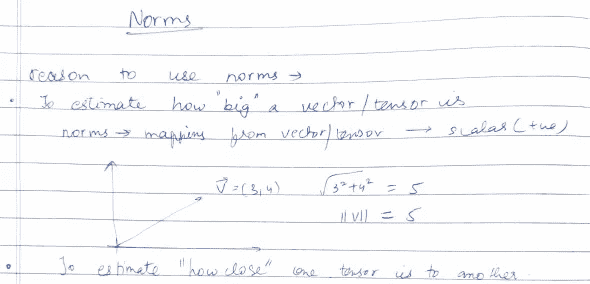 Norms
reason to use norms →
• To estimate how "big" a vector/tensor is
norms → mapping from vector/tensor → scalar (+ve)
V⃗ = (3,4) √3²+4² = 5
||V|| = 5
• To estimate "how close" one tensor is to another.